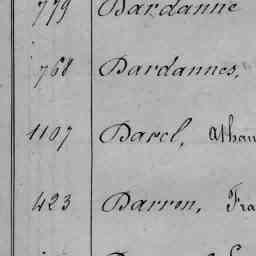 779 Bardanne
768 Bardannes,
1107 Barel, Athan
423 Barron, Fra